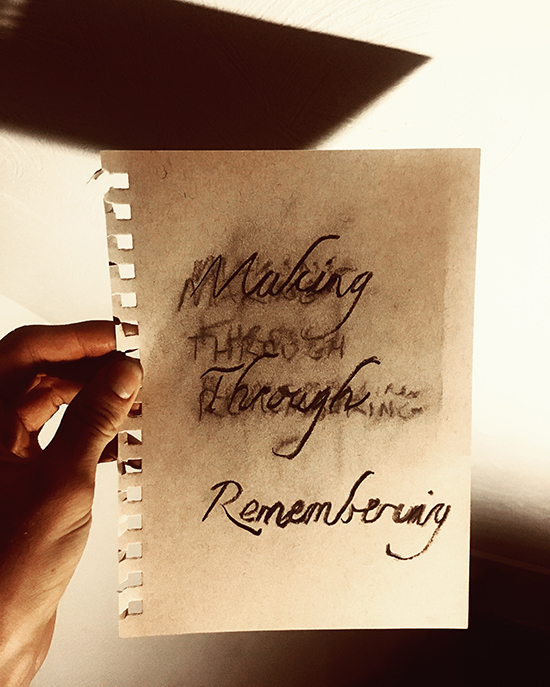 Making
THROUGH
Through
Remembering